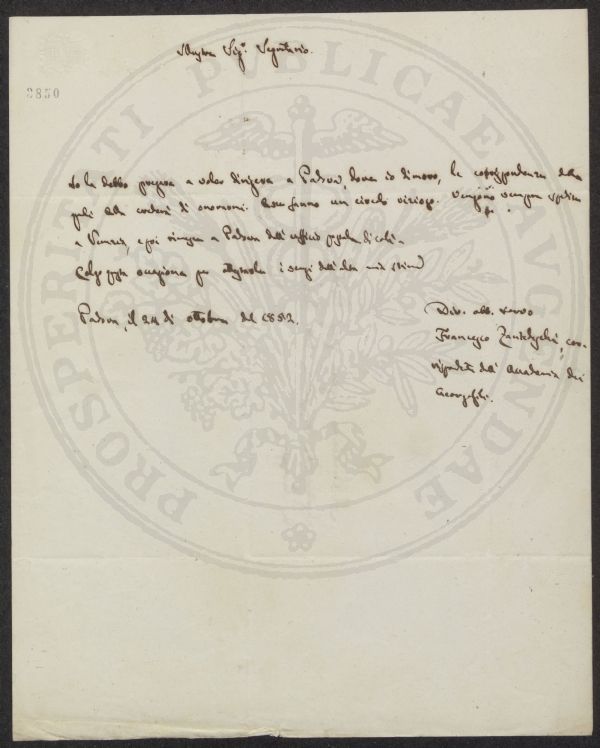 Sig.r Segretario.
2850
Io la debbo pregare a voler dirigere a Padova, dove io dimoro, la corrispondenza della
di economi. Esse fanno un circolo vizioso. Vengono sempre spedite
a Venezia, e poi a Padova dall'ufficio postale di colà.
Colgo questa occasione per i sensi dell'alta mia stima
Padova, il 24 di ottobre del 1852.
Div. obb. servo
Francesco Zantedeschi, cor-
rispondente dell'Accademia dei
Georgofili.
PROSPERITATI PUBLICAE AUGENDAE